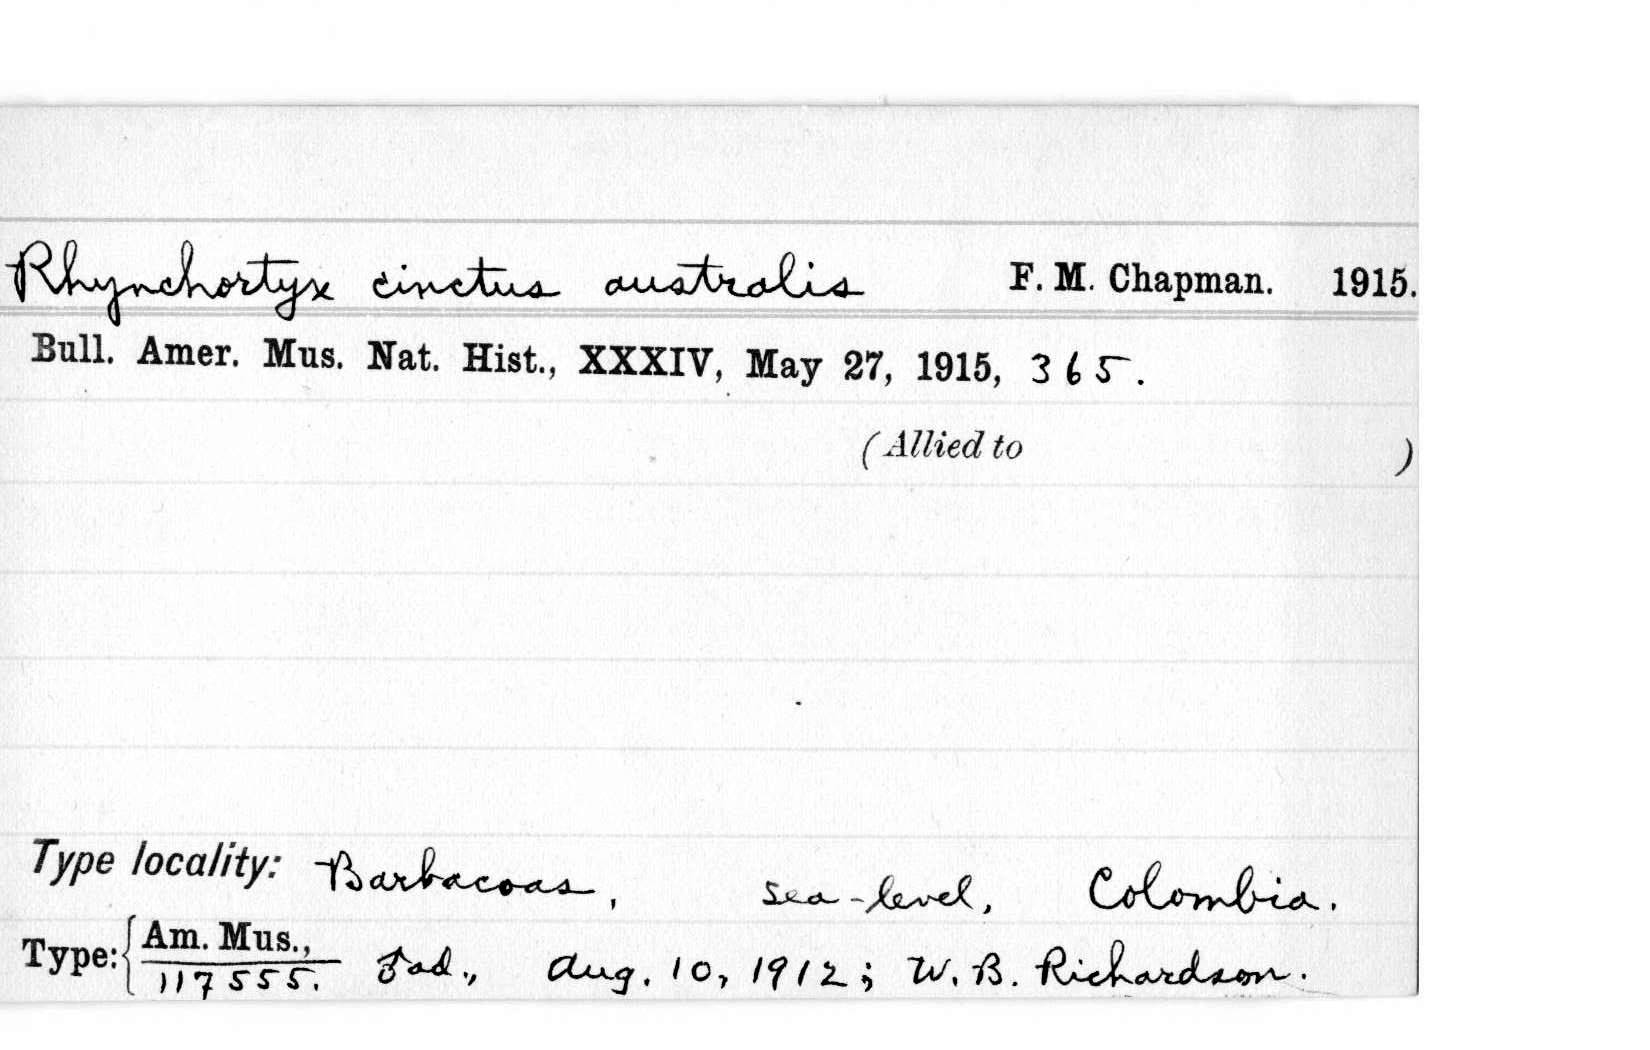 Rhynchortyx cinctus australis F. M. Chapman. 1915.
Bull. Amer. Mus. Nat. Hist., XXXIV, May 27, 1915, 365.
(Allied to )
Type locality: Barbacoas, sea-level, Colombia.
Type: { Am. Mus., 117555. ad., Aug. 10, 1912; W. B. Richardson.